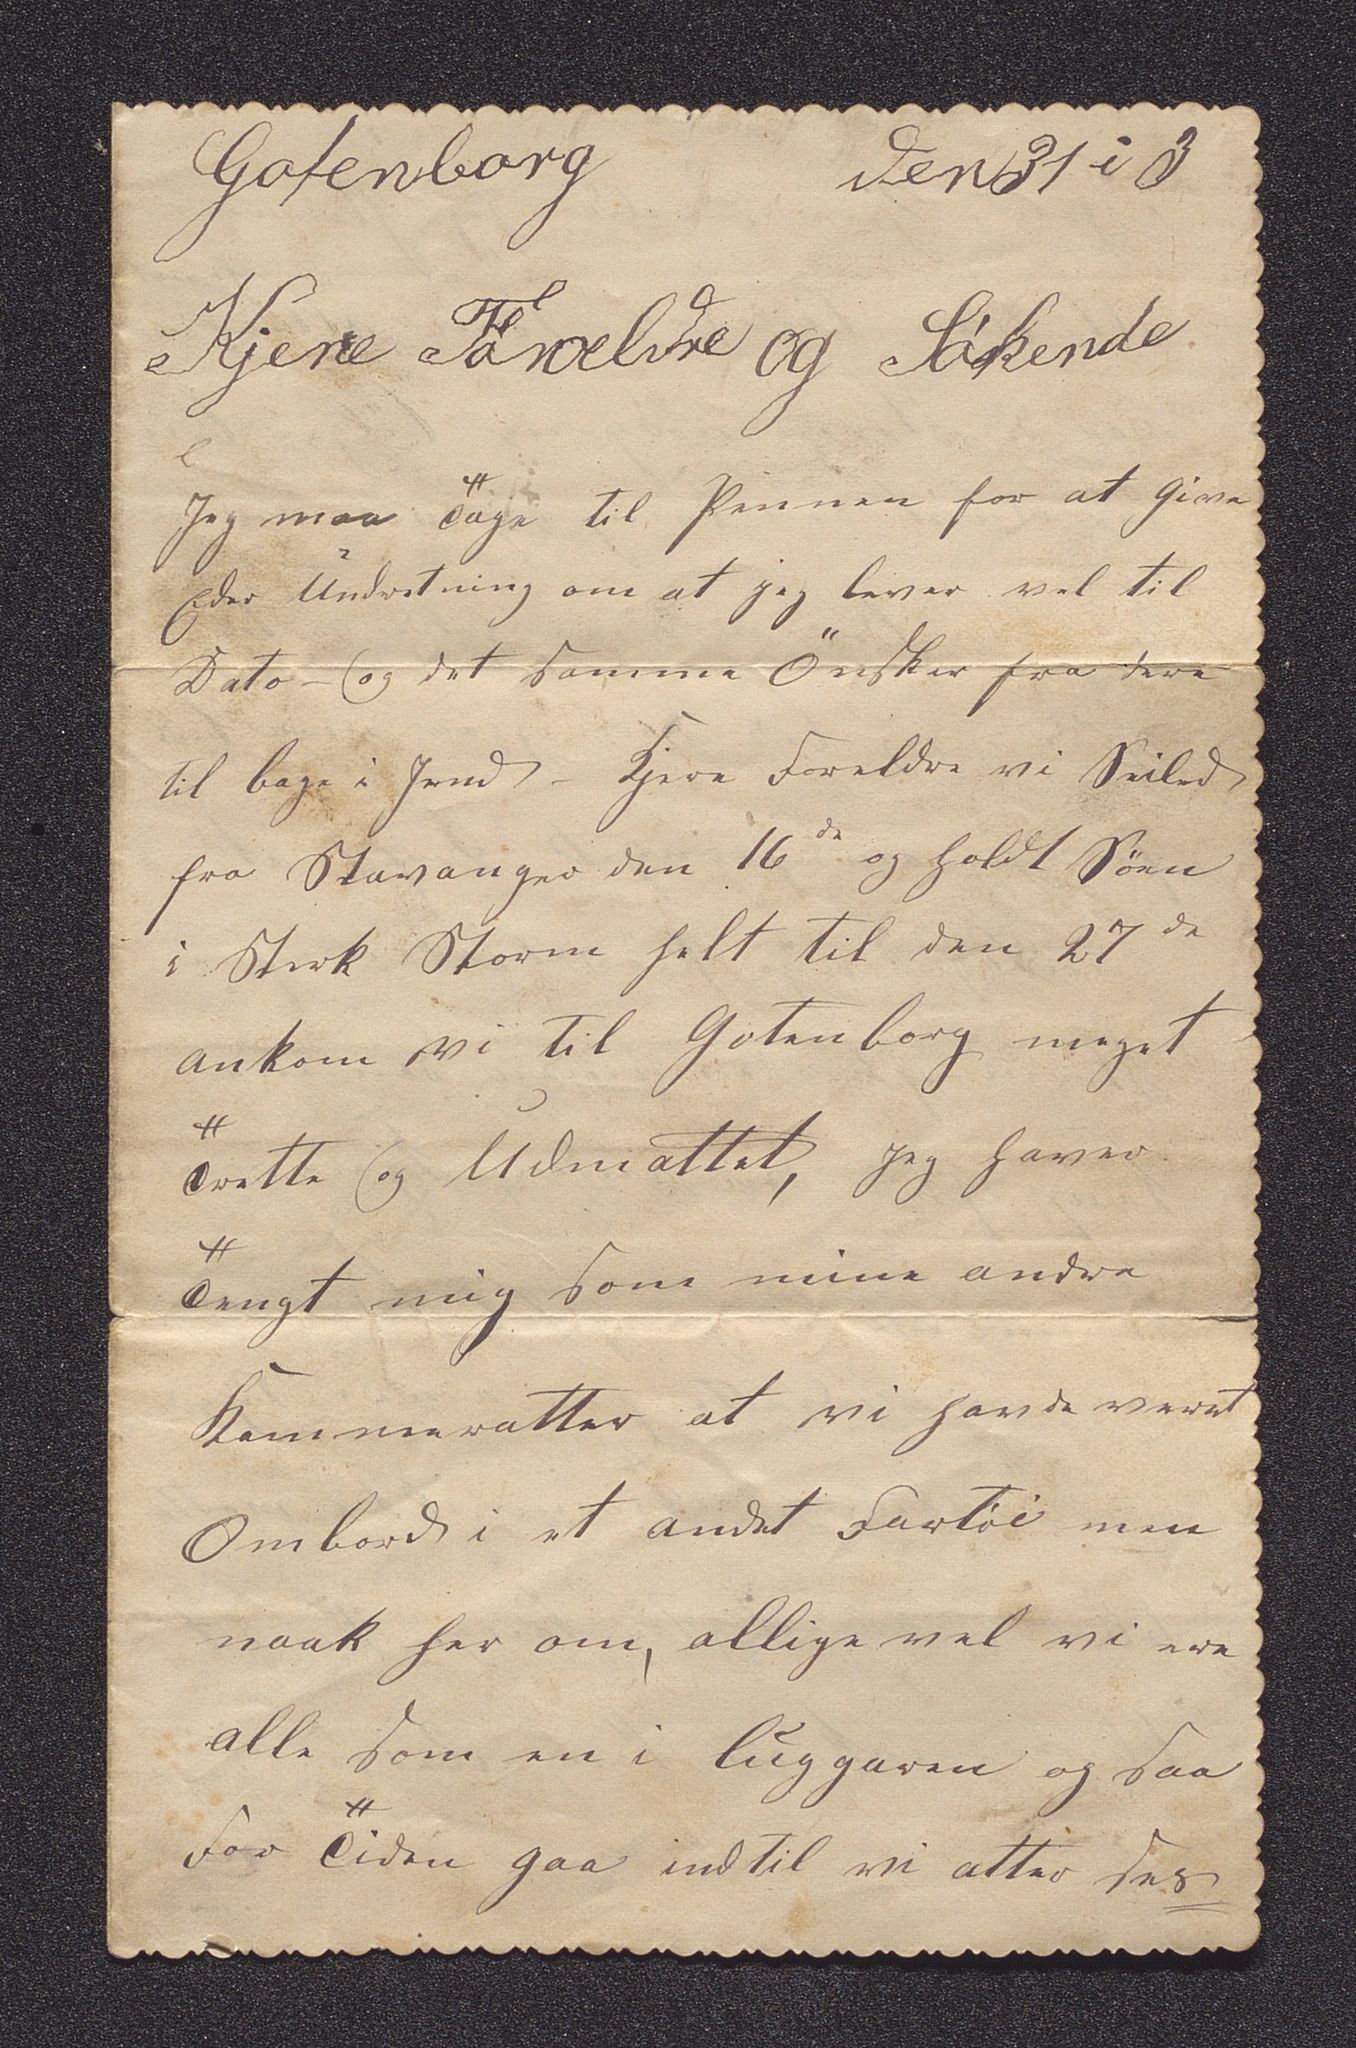 Gotenborg den 31 i 3
Kjere Forældre og Søskende
Jeg maa Tage til Pennen for at give
Eder Undretning om at jeg lever vel til
Dato – og det samme Önsker fra dere
til bage i Jend – Kjere Foreldre vi Seiled
fra Stavanger den 16de og holdt Söen
i Sterk Storm helt til den 27de
ankom vi til Gotenborg meget
Trette og Udmattet, jeg haver
Tengt mig som mine andre
Kammeratter at vi havde veret
Ombord i et andet Fartöi men
naak her om, allige vel vi ere
alle som en i luggaren og saa
For Tiden gaa indtil vi atter ses